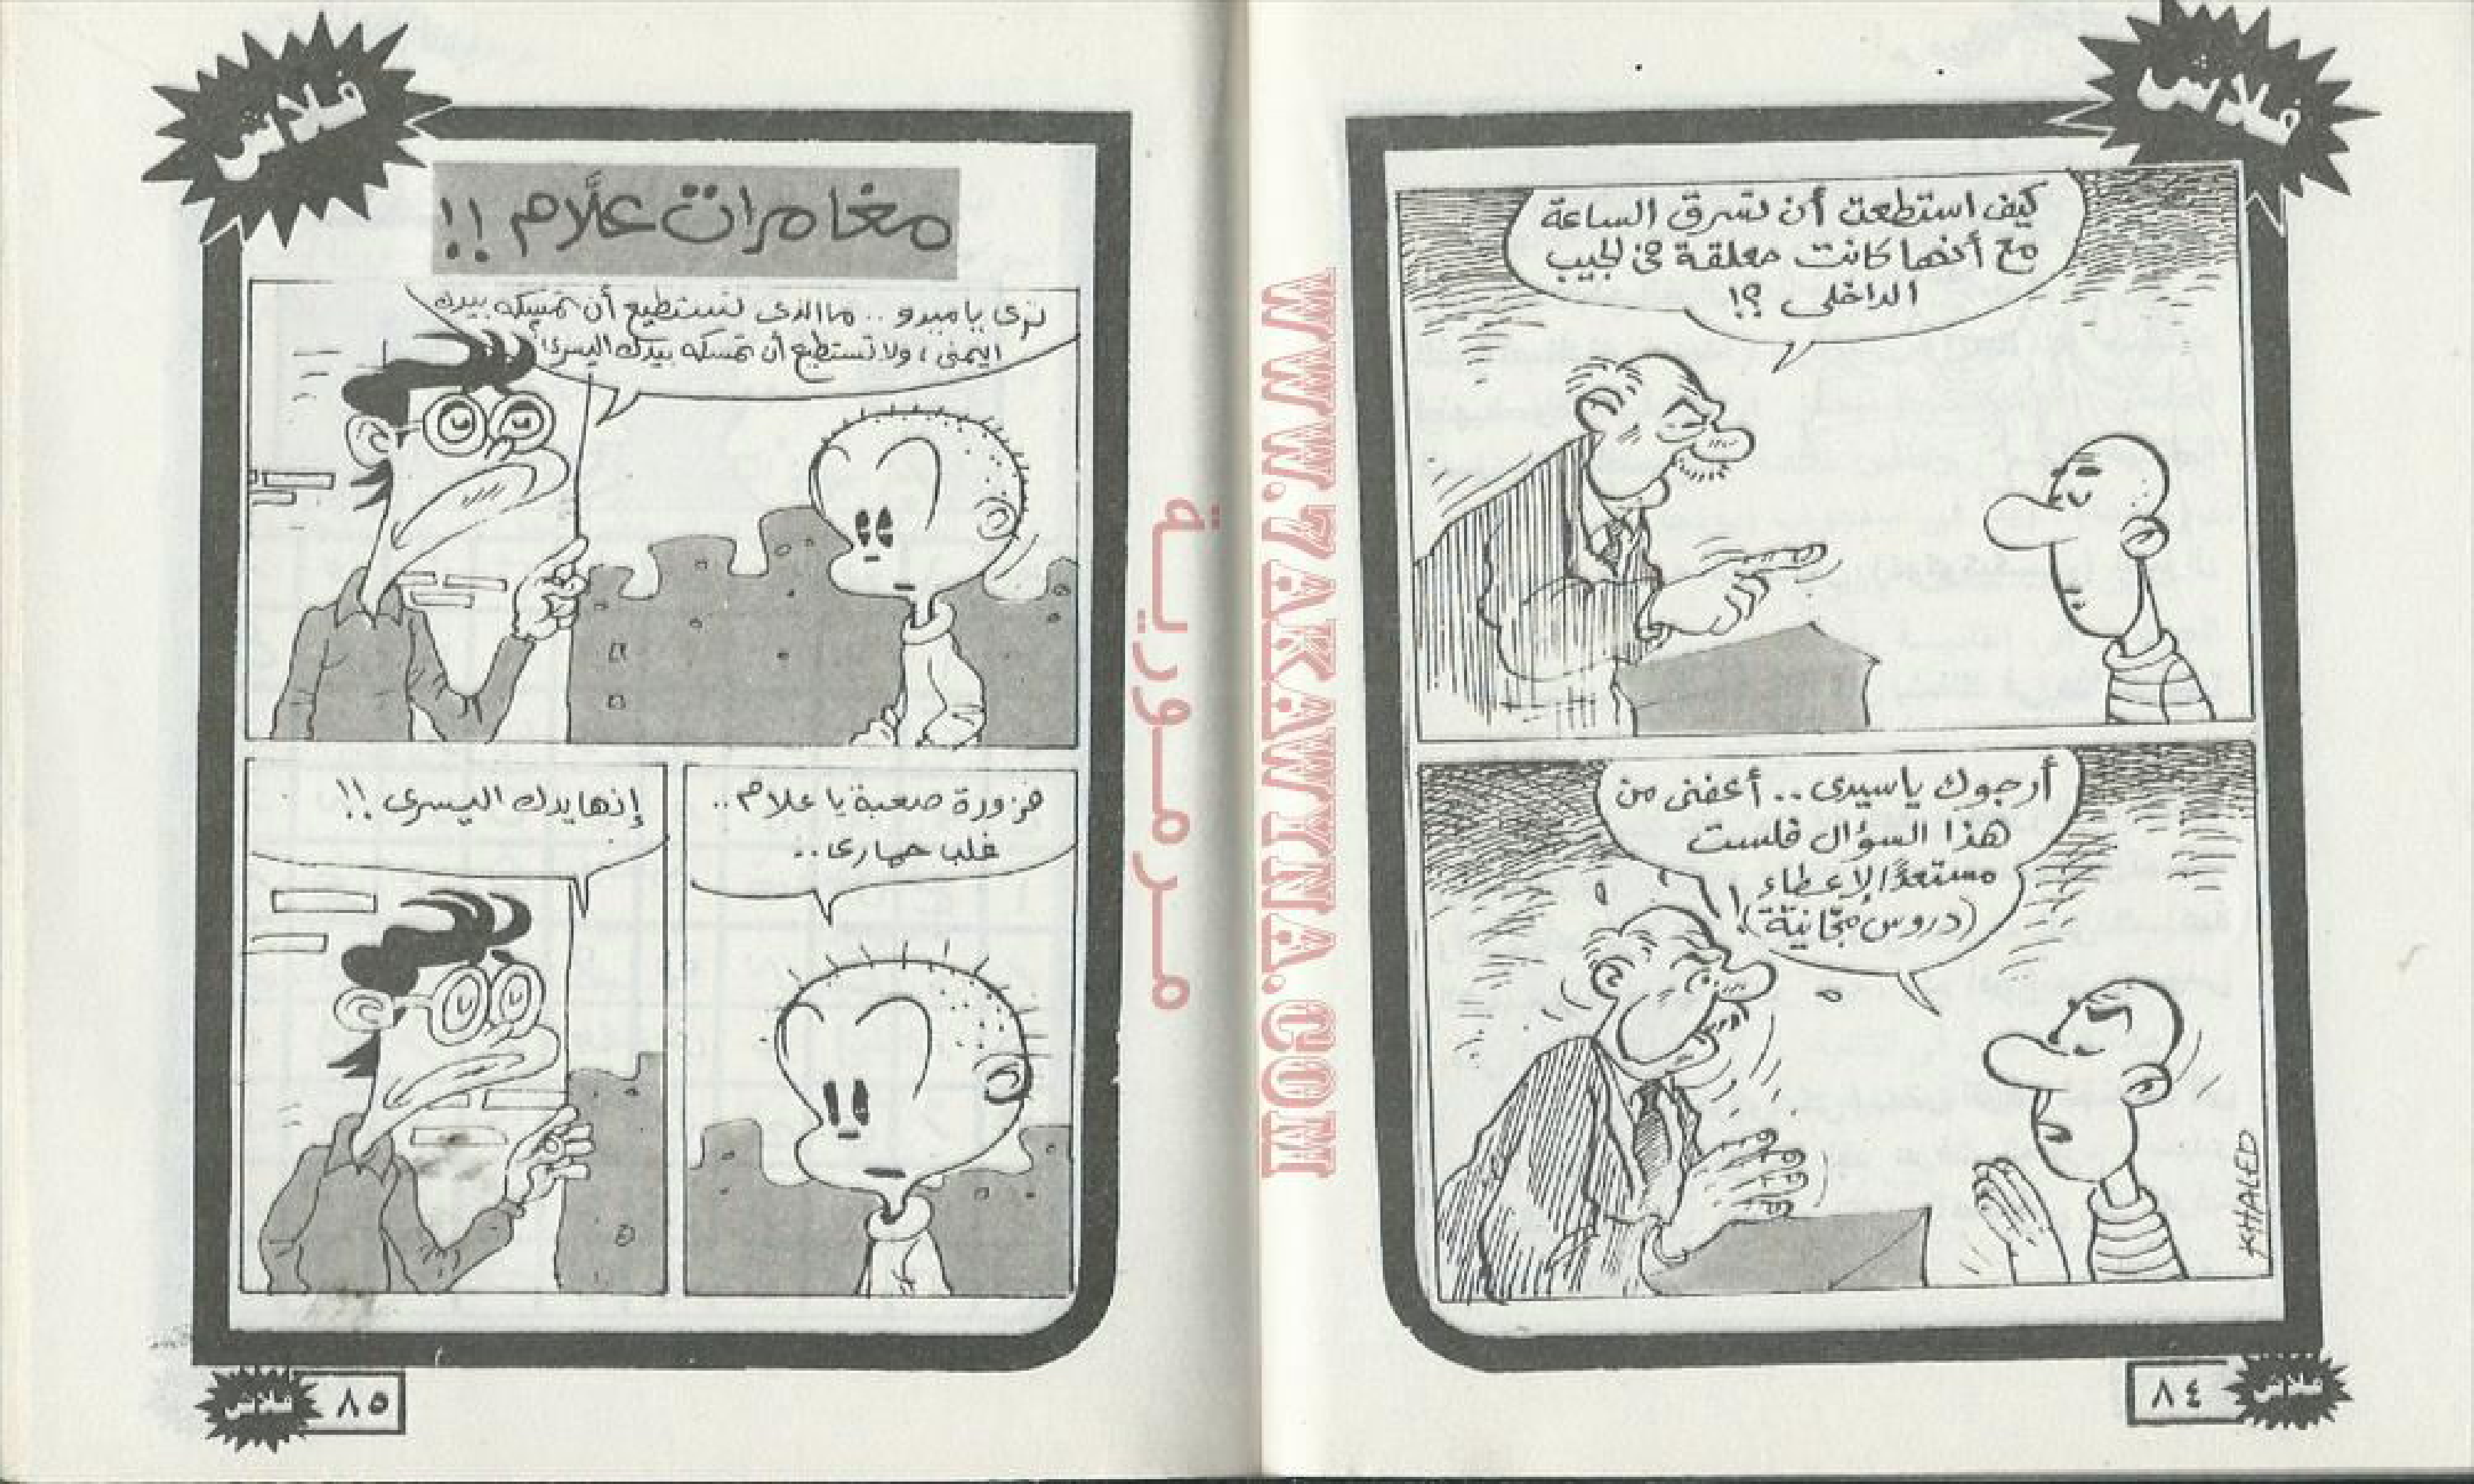 فلاش
كيف استطعت أن تسرق الساعة
مع أنها كانت معلقة في الجيب
الداخلى ؟!
أرجوك ياسيدى .. أعفنى من
هذا السؤال فلست
مستعدًا لإعطاء
(دروس مجّانيّة)!
KHALED
فلاش
٨٤
فلاش
مغامرات علَّام !!
ترى يا ميدو .. ما الذى تستطيع أن تمسكه بيدك
اليمنى ، ولا تستطيع أن تمسكه بيدك اليسرى؟
فزورة صعبة يا علام ..
غلب حمارى ..
إنها يدك اليسرى !!
فلاش
٨٥
مرمورية
WWW.7AKAWINA.COM